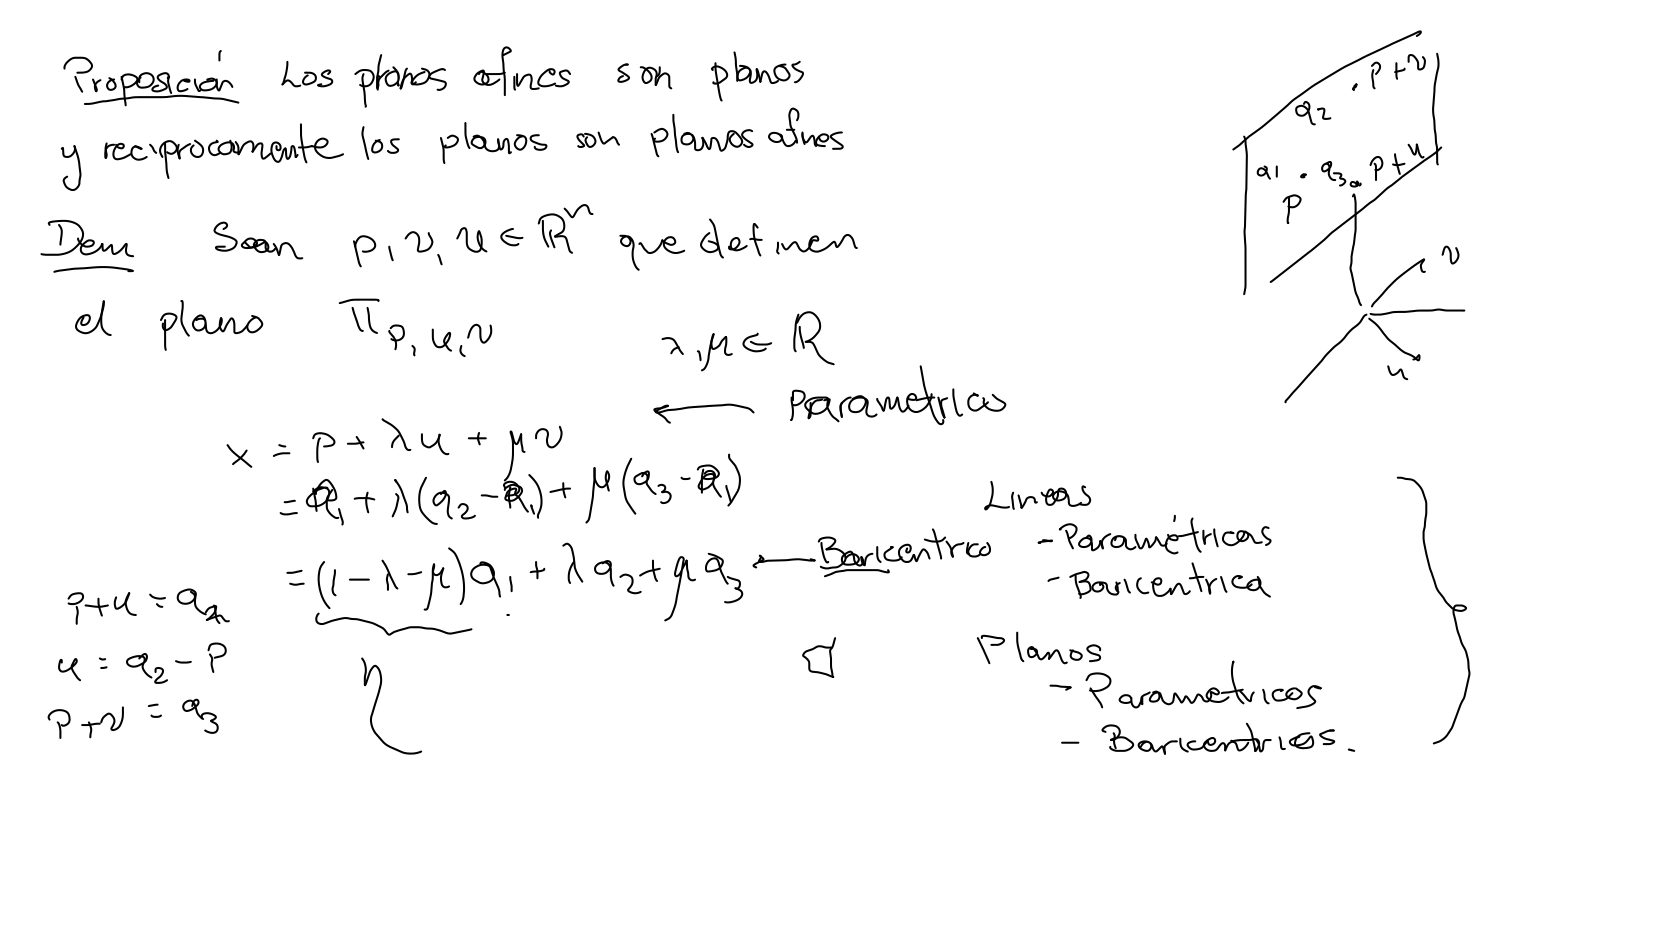 Proposición Los planos afines son planos
y recíprocamente los planos son planos afines
Dem Sean p, v, u ∈ ℝⁿ que definen
el plano Π p, u, v
λ, μ ∈ ℝ
← Parametrico
x = p + λu + μv
= q₁ + λ(q₂ - q₁) + μ(q₃ - q₁)
= (1 - λ - μ)q₁ + λq₂ + μq₃ ← Baricentrico
η
p+u = q₂
u = q₂ - p
p+v = q₃
Lineas
- Paramétricas
- Baricentrica
Planos
- Parametricos
- Baricentricos.
q₂ . p+v
q₁ . q₃ . p+u
p
v
u